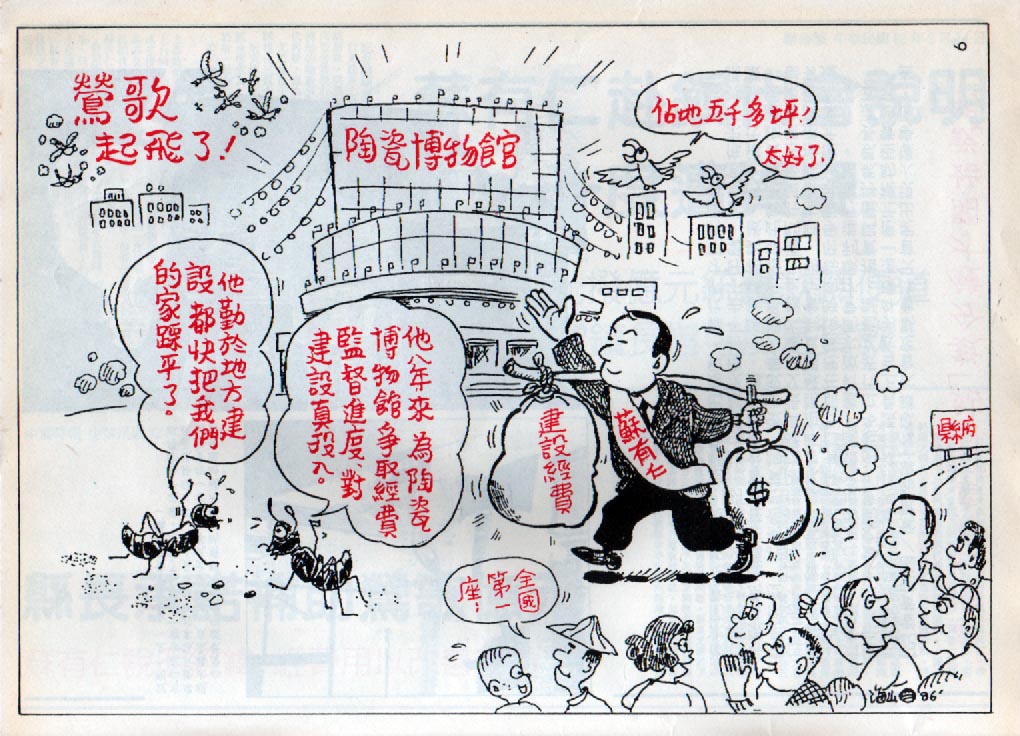 莺歌
起飛了!
陶瓷博物館
佔地五千多坪!
太好了.
他勤於地方建
設都快把我們
的家踩平了。
他八年來為陶瓷
博物館爭取經費
監督進度、對
建設真投入。
建設經費
蘇有仁
$
縣府
全國
第一
座!
海山 86'